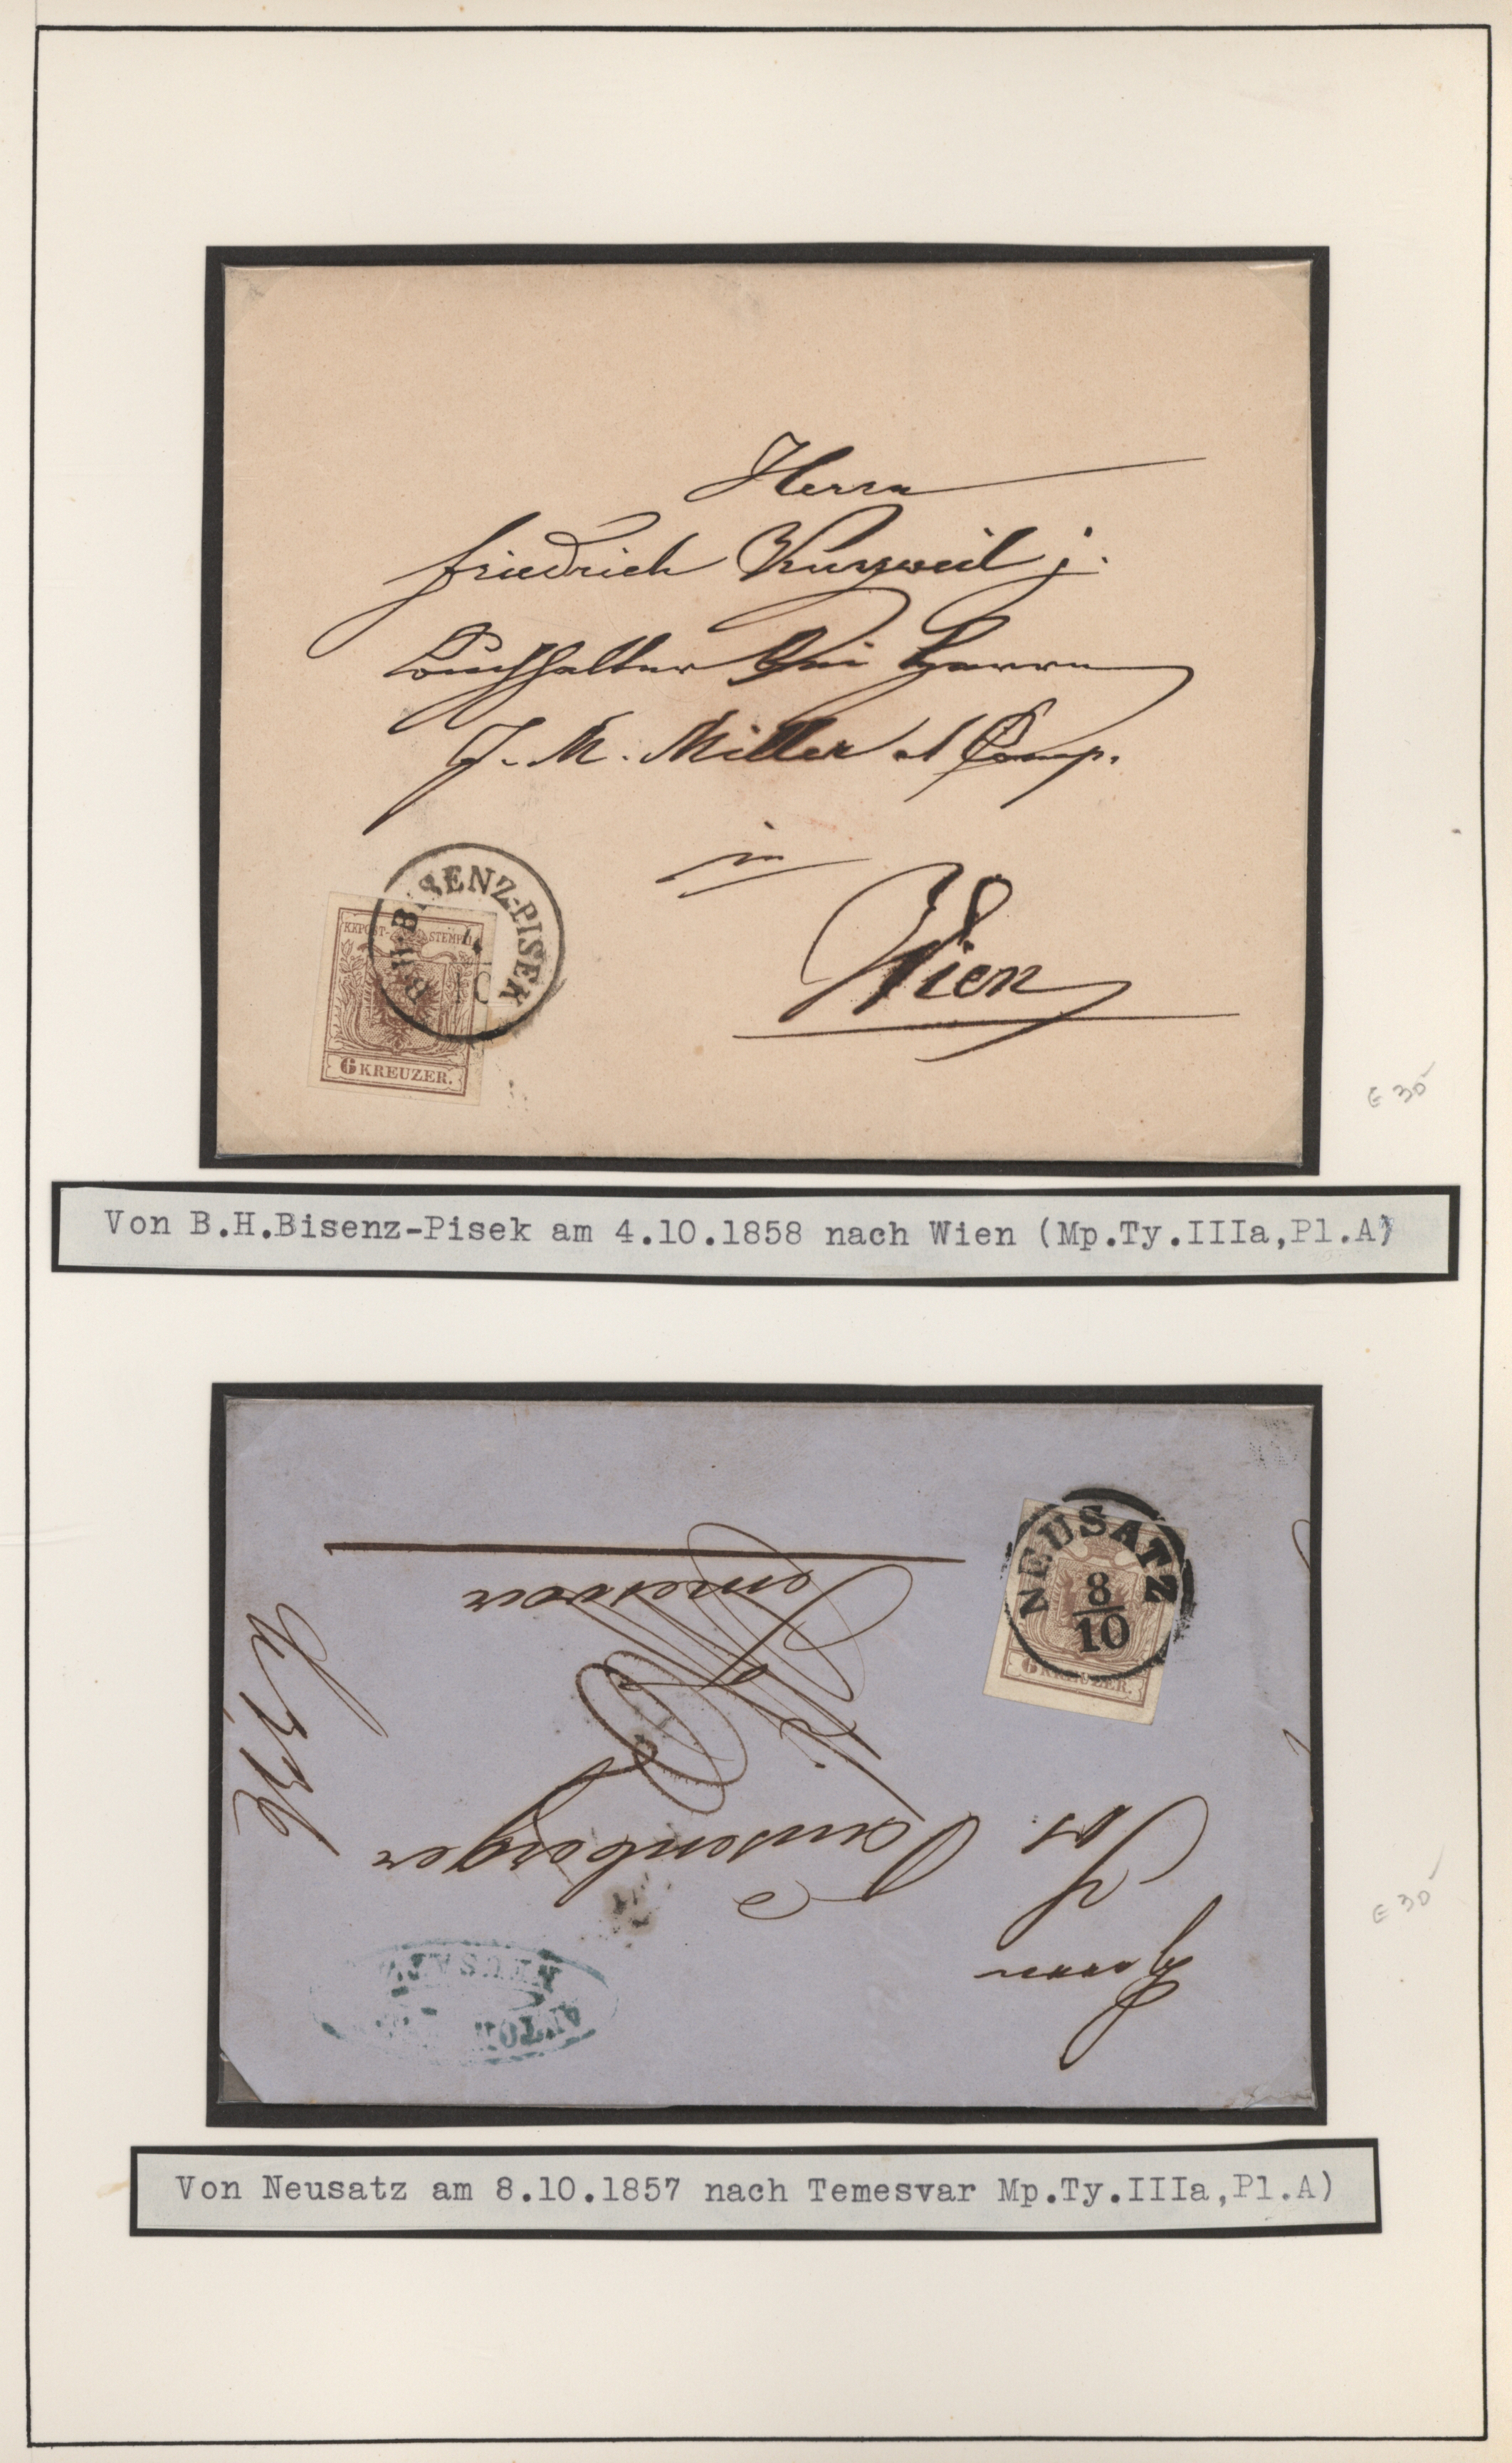 Herrn
Friedrich Kurzweil j.
Buchhalter bei Herrn
J. M. Miller et Comp.
in
Wien
B.H.BISENZ-PISEK
4
10
KKPOST-STEMPEL
6 KREUZER.
€ 30
Von B.H.Bisenz-Pisek am 4.10.1858 nach Wien (Mp.Ty.IIIa,Pl.A)
NEUSATZ
8
10
6 KREUZER.
Herrn
Jos.
Tausenberger
Temesvar
NEUSATZ
ANTON
€ 30
Von Neusatz am 8.10.1857 nach Temesvar Mp.Ty.IIIa,Pl.A)